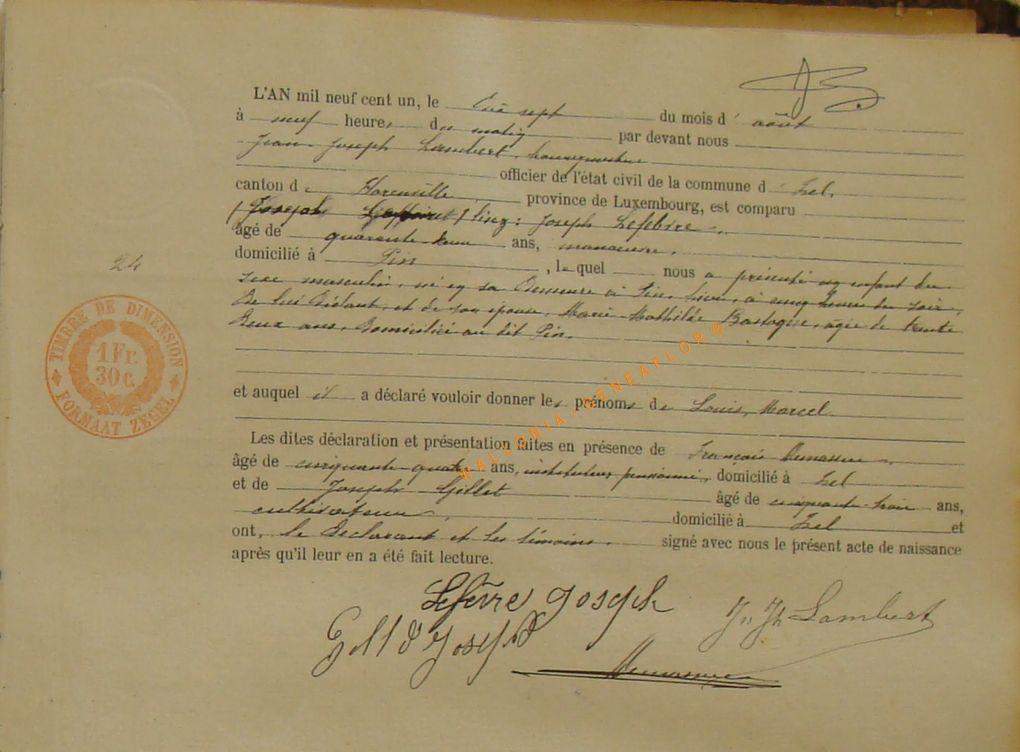 L'AN mil neuf cent un, le sept du mois d' août
à neuf heures du matin par devant nous
Jean Joseph Lambert, bourgmestre
officier de l'état civil de la commune d' Izel,
canton de Florenville province de Luxembourg, est comparu
Joseph lisez: Joseph Lefebvre,
âgé de quarante deux ans, manœuvre,
domicilié à Pin, lequel nous a présenté un enfant du
sexe masculin, né en sa demeure à Pin, hier, à cinq heures du soir,
De lui Déclarant, et de son épouse, Marie-Mathilde Bastogne, âgée de trente
Deux ans, Domiciliée au dit Pin,
et auquel il a déclaré vouloir donner les prénoms de Louis, Marcel.
24
TIMBRE DE DIMENSION
1 Fr.
30 c.
FORMAAT ZEGEL
WALLONIA GENEAFLOR®
Les dites déclaration et présentation faites en présence de François
âgé de cinquante-quatre ans, instituteur pensionné, domicilié à Izel
et de Joseph Gillet âgé de cinquant-trois ans,
cultivateur, domicilié à Izel et
ont, le Déclarant et les témoins, signé avec nous le présent acte de naissance
après qu'il leur en a été fait lecture.
Lefèvre Joseph
Jn Jh Lambert
Gillet Joseph